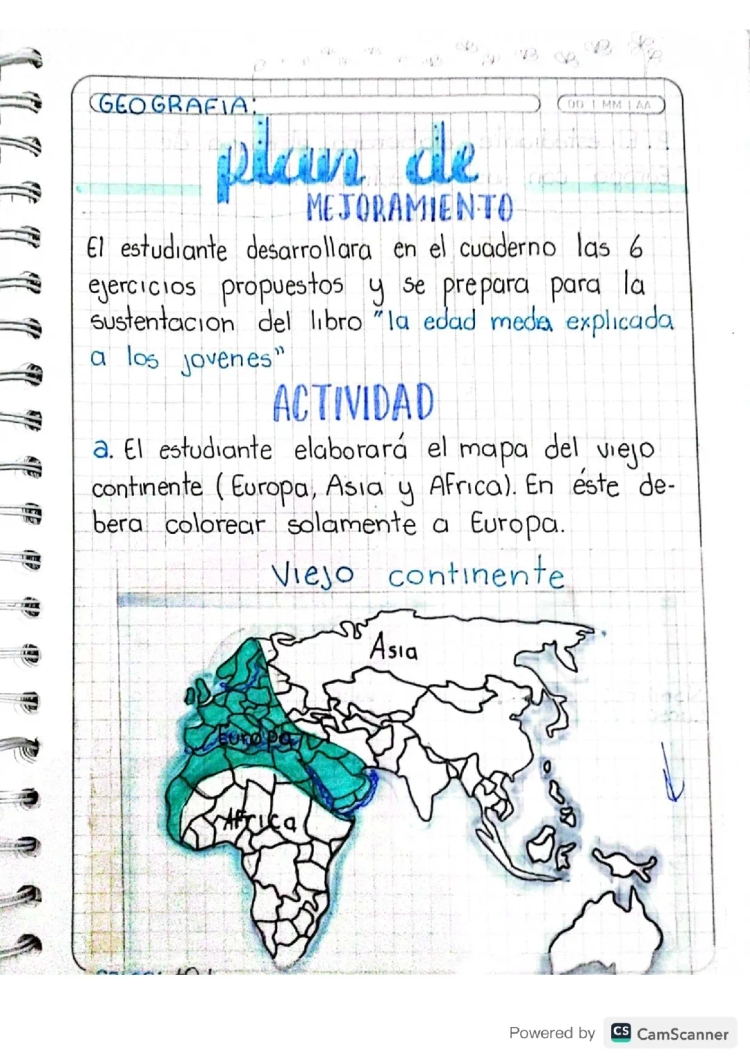 GEOGRAFIA:
DD | MM | AA
plan de
MEJORAMIENTO
El estudiante desarrollara en el cuaderno las 6
ejercicios propuestos y se prepara para la
sustentacion del libro "la edad meda explicada
a los jovenes"
ACTIVIDAD
a. El estudiante elaborará el mapa del viejo
continente (Europa, Asia y Africa). En éste de-
bera colorear solamente a Europa.
Viejo continente
Asia
Europa
Africa
Powered by CS CamScanner